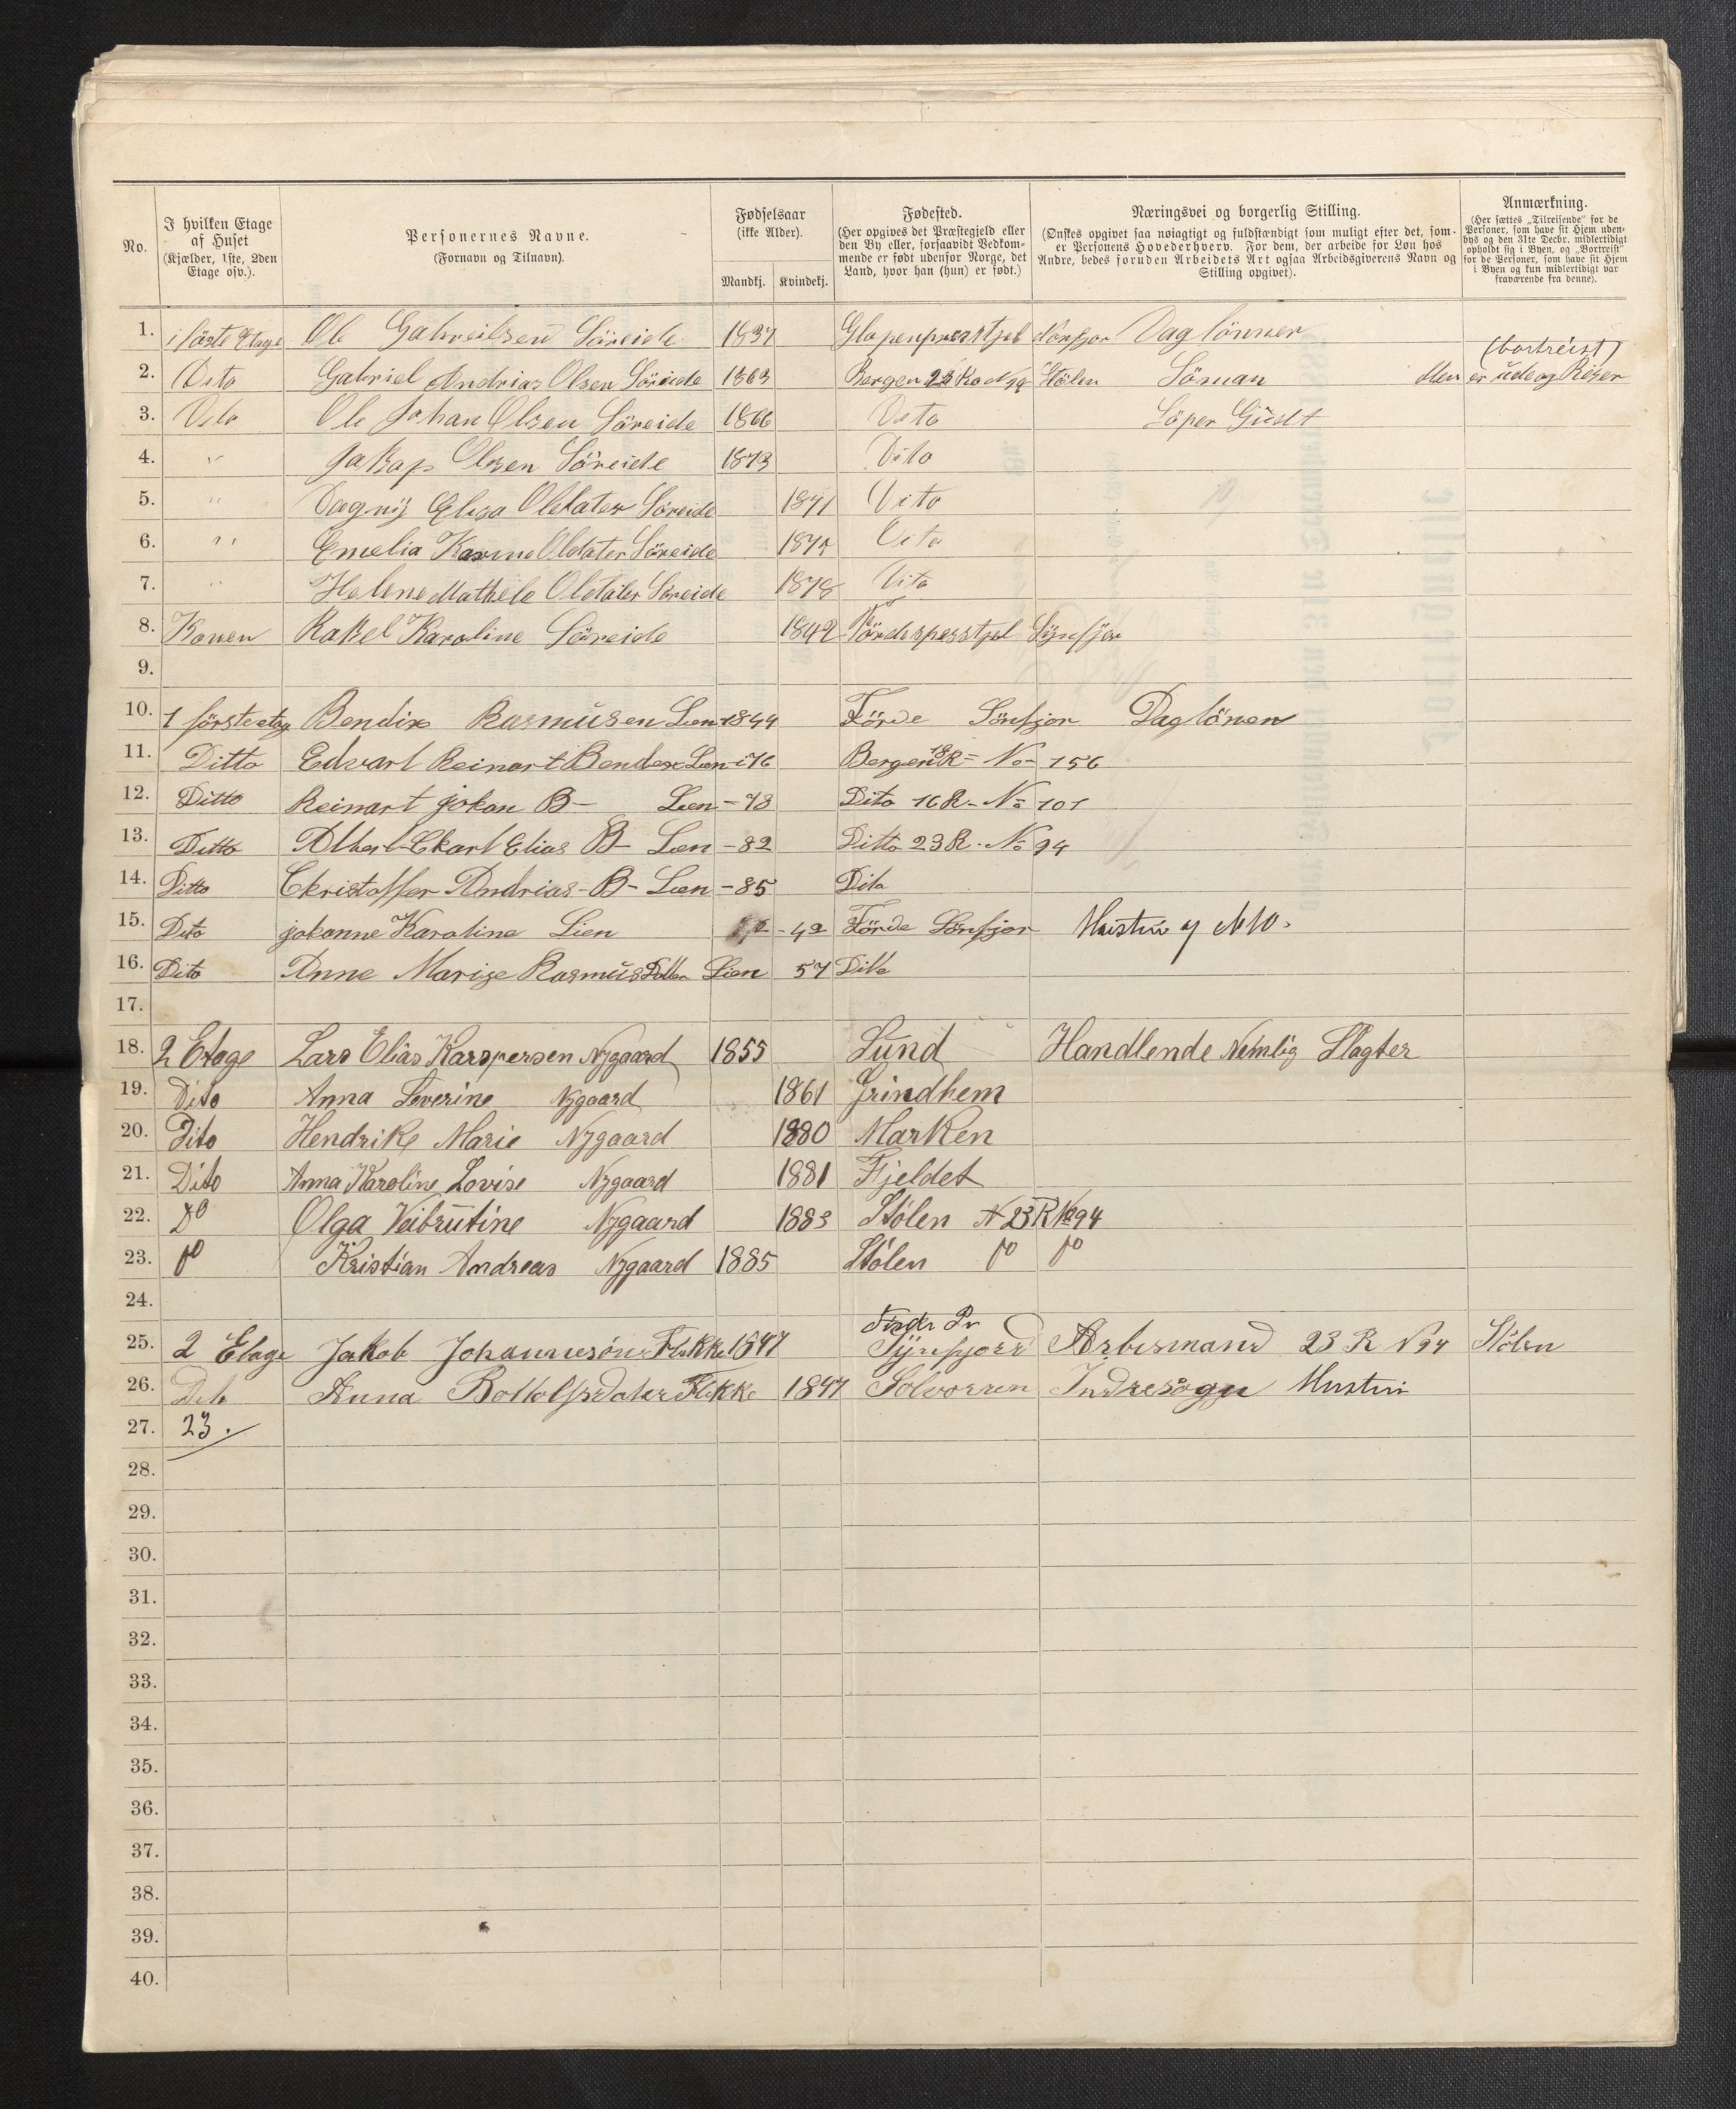 No.
I hvilken Etage af Huset (Kjælder, 1ste, 2den Etage osv.).
Personernes Navne. (Fornavn og Tilnavn).
Fødselsaar (ikke Alder).
Mandkj. Kvindekj.
Fødested. (Her opgives det Præstegjeld eller den By eller, forsaavidt Vedkommende er født udenfor Norge, det Land, hvor han (hun) er født.)
Næringsvei og borgerlig Stilling. (Ønskes opgivet saa nøiagtigt og fuldstændigt som muligt efter det, som er Personens Hovederhverv. For dem, der arbeide for Løn hos Andre, bedes foruden Arbeidets Art ogsaa Arbeidsgiverens Navn og Stilling opgivet).
Anmærkning. (Her sættes „Tilreisende“ for de Personer, som have sit Hjem udenbys og den 31te Decbr. midlertidigt opholdt sig i Byen, og „Bortreist“ for de Personer, som have sit Hjem i Byen og kun midlertidigt var fraværende fra denne).
1. i föste Etage Ole Gabreilsen Söreide 1837 Daglönner
(bortreist)
2. Dito Gabriel Andrias Olsen Söreide 1863 Bergen 23 Ro No 94 Stölen Söman Men er ude og Reiser
3. Dito Ole Johan Olsen Söreide 1866 Dito Löper Gudt
4. " Jakap Olsen Söreide 1873 Dito
5. " Dagny Elisa Oldater Söreide 1871 Dito
6. " Emelia Karine Oldater Söreide 1875 Dito
7. " Helene Mathele Oldater Söreide 1878 Dito
8. Konen Rakel Karoline Söreide 1842 Fördespresstjel Synfjor
9.
10. 1 förste etag Bendix Rasmüsen Lien 1844 Förde Sönfjor Daglönen
11. Ditto Edvart Reinart Bendex Lien - 76 Bergen 18 R= No- 156
12. Ditto Reinart johan B- Lien - 78 Dito 16 R- No 101
13. Ditto Albert Ekart Elias B- Lien - 82 Ditto 23 R. No 94
14. Ditto Christoffer Andrias - B- Lien - 85 Dito
15. Dito johanne Karoline Lien - 42 Förde Sönfjor Hustru af N 10.
16. Dito Anne Marize Rasmüs Datter Lien 57 Dito
17.
18. 2 Etage Lars Elias Karspersen Nygaard 1855 Lund Handlende Nemlig Slagter
19. Dito Anna Severine Nygaard 1861 Grindhem
20. Dito Hendrike Marie Nygaard 1880 Marken
21. Dito Anna Karoline Lovise Nygaard 1881 Fjeldet
22. Do Olga Veibrutine Nygaard 1883 Stölen N 23 R No 94
23. Do Kristian Andreas Nygaard 1885 Stölen Do Do
24.
Förde Pr
25. 2 Etage Jakob Johannesön Flekke 1847 Synfjord Arbesmand 23 R N 94 Stölen
26. Dito Anna Bottolfsdater Flekke 1847 Solvorren Indresogn Hustru
27. 23.
28.
29.
30.
31.
32.
33.
34.
35.
36.
37.
38.
39.
40.